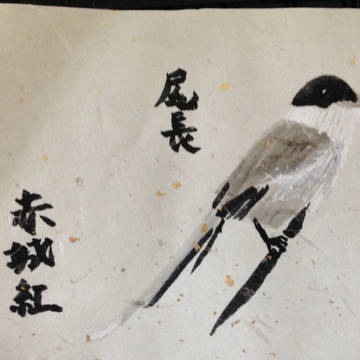 尾長
赤城紅